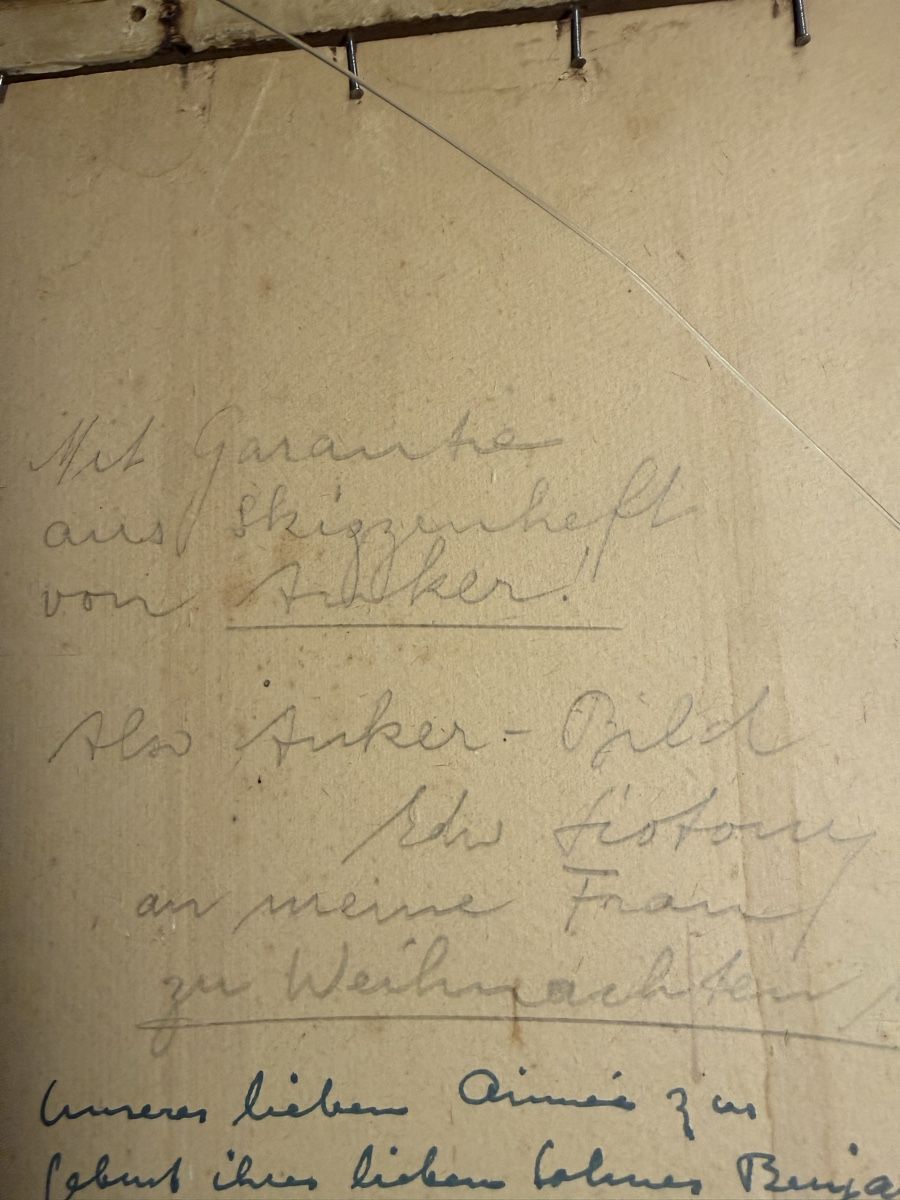 Mit Garantie
aus Skizzenheft
von Anker!
Also Anker-Bild
Edw
an meine Frau
zu Weihnachten
Unserer lieben Aimée zur
Geburt ihres lieben Sohnes Benja